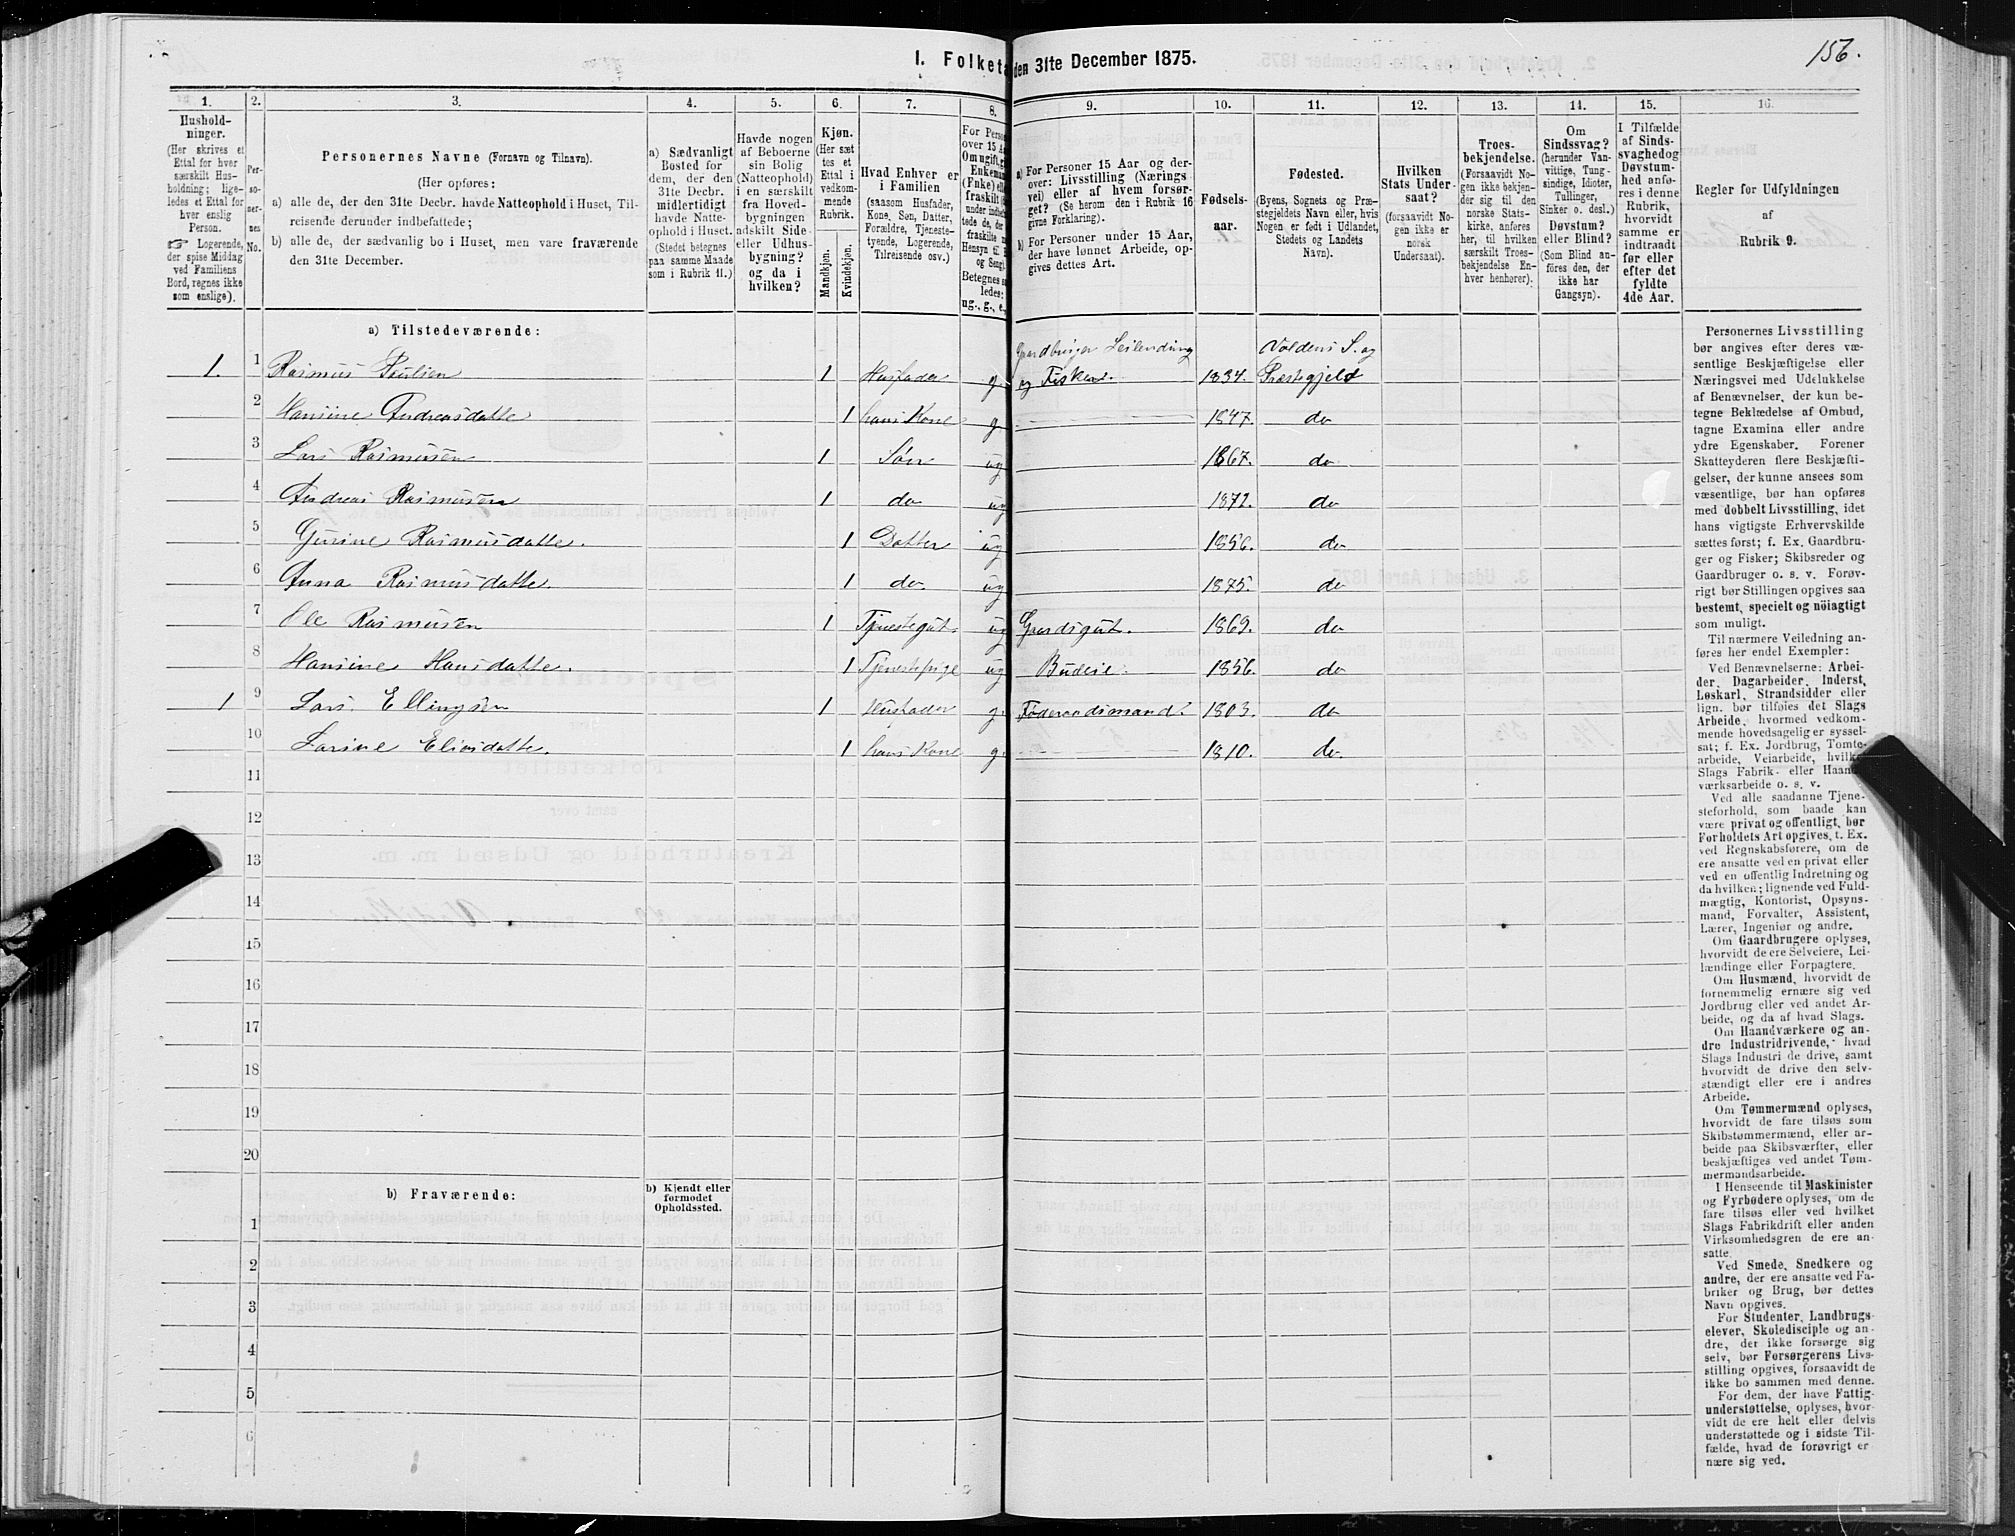 156.
I. Folketa
den 31te December 1875.
1.
2.
3.
4.
5.
6.
7.
8.
9.
10.
11.
12.
13.
14.
15.
16.
Hushold-
ninger.
(Her skrives et
Ettal for hver
særskilt Hus-
holdning; lige-
ledes et Ettal for
hver enslig
Person.
☞ Logerende,
der spise Middag
ved Familiens
Bord, regnes ikke
som enslige).
Per-
so-
ner-
nes
No.
Personernes Navne (Fornavn og Tilnavn).
(Her opføres:
a) alle de, der den 31te Decbr. havde Natteophold i Huset, Til-
reisende derunder indbefattede;
b) alle de, der sædvanlig bo i Huset, men vare fraværende
den 31te December.
a) Sædvanligt
Bosted for
dem, der den
31te Decbr.
midlertidigt
havde Natte-
ophold i Huset.
(Stedet betegnes
paa samme Maade
som i Rubrik 11.)
Havde nogen
af Beboerne
sin Bolig
(Natteophold)
i en særskilt
fra Hoved-
bygningen
adskilt Side-
eller Udhus-
bygning?
og da i
hvilken?
Kjøn.
(Her sæt-
tes et
Ettal i
vedkom-
mende
Rubrik.
Mandkjøn.
Kvindekjøn.
Hvad Enhver er
i Familien
(saasom Husfader,
Kone, Søn, Datter,
Forældre, Tjeneste-
tyende, Logerende,
Tilreisende osv.)
For Perso
over 15 A
Om ugift, g
Enkema
(Fnke) el
fraskilt
under indbe
tede de, der
fraskilte
Hensyn til
og Seng).
Betegnes sa
ledes:
ug., g., e.,
a) For Personer 15 Aar og der-
over: Livsstilling (Nærings-
vei) eller af hvem forsør-
get? (Se herom den i Rubrik 16
givne Forklaring).
b) For Personer under 15 Aar,
der have lønnet Arbeide, op-
gives dettes Art.
Fødsels-
aar.
Fødested.
(Byens, Sognets og Præ-
stegjeldets Navn eller, hvis
Nogen er født i Udlandet,
Stedets og Landets
Navn).
Hvilken
Stats Under-
saat?
(forsaavidt No-
gen ikke er
norsk
Undersaat).
Troes-
bekjendelse.
(Forsaavidt No-
gen ikke bekjen-
der sig til den
norske Stats-
kirke, anføres
her, til hvilken
særskilt Troes-
bekjendelse En-
hver henhører).
Om
Sindssvag?
(herunder Van-
vittige, Tung-
sindige, Idioter,
Tullinger,
Sinker o. desl.)
Døvstum?
eller Blind?
(Som Blind an-
føres den, der
ikke har
Gangsyn).
I Tilfælde
af Sinds-
svaghed og
Døvstum-
hed anfø-
res i denne
Rubrik,
hvorvidt
samme er
indtraadt
før eller
efter det
fyldte
4de Aar.
Regler for Udfyldningen
af
Rubrik 9.
a) Tilstedeværende:
Gaardbruger Leilending Voldens S. og
1. 1 Rasmus Paulsen 1 Husfader g. og Fisker. 1834. Præstegjeld
2 Hansine Andreasdatte 1 hans Kone g. 1847. do
3 Lars Rasmusen 1 Søn ug 1867. do.
4 Andreas Rasmusen 1 do ug 1872. do
5 Gurine Rasmusdatte. 1 Datter ug 1856. do
6 Anna Rasmusdatte. 1 do. ug 1875. do
7 Ole Rasmusen 1 Tjenestegut. ug Gaardsgut. 1869. do
8 Hansine Hansdatte. 1 Tjenestepige ug Budeie. 1856. do
1 9 Lars Ellingsen 1 Husfader g. Føderaadsmand. 1803. do
10 Larine Eliasdatte. 1 hans Kone g. 1810. do.
11
12
13
14
15
16
17
18
19
20
b) Fraværende:
b) Kjendt eller
formodet
Opholdssted.
1
2
3
4
5
6
Personernes Livsstilling
bør angives efter deres væ-
sentlige Beskjæftigelse eller
Næringsvei med Udelukkelse
af Benævnelser, der kun be-
tegne Beklædelse af Ombud,
tagne Examina eller andre
ydre Egenskaber. Forener
Skatteyderen flere Beskjæfti-
gelser, der kunne ansees som
væsentlige, bør han opføres
med dobbelt Livsstilling, idet
hans vigtigste Erhvervskilde
sættes først; f. Ex. Gaardbru-
ger og Fisker; Skibsreder og
Gaardbruger o. s. v. Forøv-
rigt bør Stillingen opgives saa
bestemt, specielt og nöiagtigt
som muligt.
Til nærmere Veiledning an-
føres her endel Exempler:
Ved Benævnelserne: Arbei-
der, Dagarbeider, Inderst,
Løskarl, Strandsidder eller
lign. bør tilføies det Slags
Arbeide, hvormed vedkom-
mende hovedsagelig er syssel-
sat; f. Ex. Jordbrug, Tomte-
arbeide, Veiarbeide, hvilke
Slags Fabrik- eller Haand-
værksarbeide o. s. v.
Ved alle saadanne Tjene-
steforhold, som baade kan
være privat og offentligt, bør
Forholdets Art opgives, t. Ex.
ved Regnskabsførere, om de
ere ansatte ved en privat eller
ved en offentlig Indretning og
da hvilken; lignende ved Fuld-
mægtig, Kontorist, Opsyns-
mand, Forvalter, Assistent,
Lærer, Ingeniør og andre.
Om Gaardbrugere oplyses,
hvorvidt de ere Selveiere, Lei-
lændinge eller Forpagtere.
Om Husmænd, hvorvidt de
fornemmelig ernære sig ved
Jordbrug eller ved andet Ar-
beide, og da af hvad Slags.
Om Haandværkere og an-
dre Industridrivende, hvad
Slags Industri de drive, samt
hvorvidt de drive den selv-
stændigt eller ere i andres
Arbeide.
Om Tømmermænd oplyses,
hvorvidt de fare tilsøs som
Skibstømmermænd, eller ar-
beide paa Skibsværfter, eller
beskjæftiges ved andet Tøm-
mermandsarbeide.
I Henseende til Maskinister
og Fyrbødere oplyses, om de
fare tilsøs eller ved hvilket
Slags Fabrikdrift eller anden
Virksomhedsgren de ere an-
satte.
Ved Smede, Snedkere og
andre, der ere ansatte ved Fa-
briker og Brug, bør dettes
Navn opgives.
For Studenter, Landbrugs-
elever, Skoledisciple og an-
dre, der ikke forsørge sig
selv, bør Forsørgerens Livs-
stilling opgives, forsaavidt de
ikke bo sammen med denne.
For dem, der have Fattig-
understøttelse, oplyses, hvor-
vidt de ere helt eller delvis
understøttede og i sidste Til-
fælde, hvad de forøvrigt er-
nære sig ved.